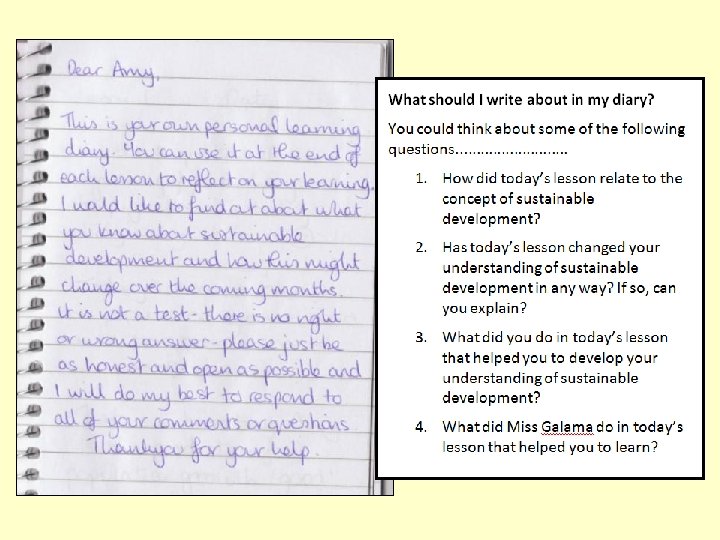 Dear Amy,
This is your own personal learning
diary. You can use it at the end of
each lesson to reflect on your learning.
I would like to find out about what
you know about sustainable
development and how this might
change over the coming months.
It is not a test - there is no right
or wrong answer - please just be
as honest and open as possible and
I will do my best to respond to
all of your comments or questions.
Thankyou for your help.
What should I write about in my diary?
You could think about some of the following
questions...........................
1. How did today's lesson relate to the
concept of sustainable
development?
2. Has today's lesson changed your
understanding of sustainable
development in any way? If so, can
you explain?
3. What did you do in today's lesson
that helped you to develop your
understanding of sustainable
development?
4. What did Miss Galama do in today's
lesson that helped you to learn?